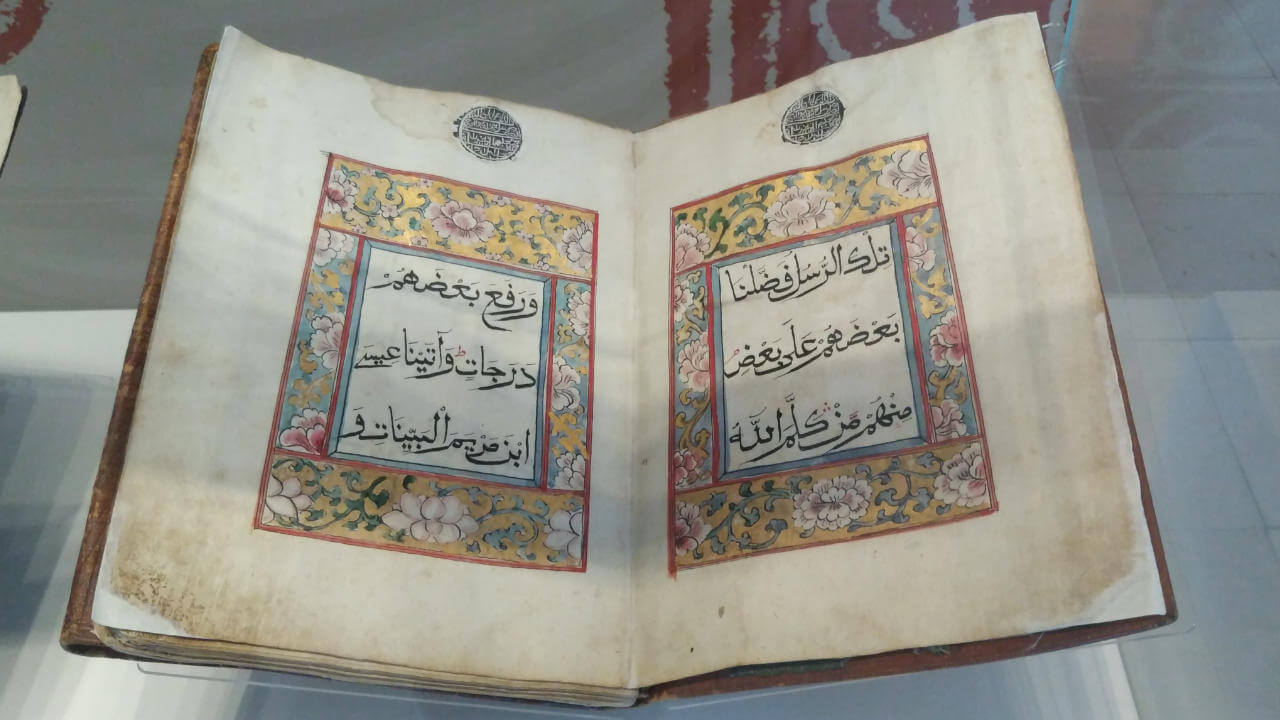 تِلْكَ الرُّسُلُ فَضَّلْنَا
بَعْضَهُمْ عَلَى بَعْضٍ
مِنْهُمْ مَنْ كَلَّمَ اللَّهُ
وَرَفَعَ بَعْضَهُمْ
دَرَجَاتٍ وَآتَيْنَا عِيسَى
ابْنَ مَرْيَمَ الْبَيِّنَاتِ وَ